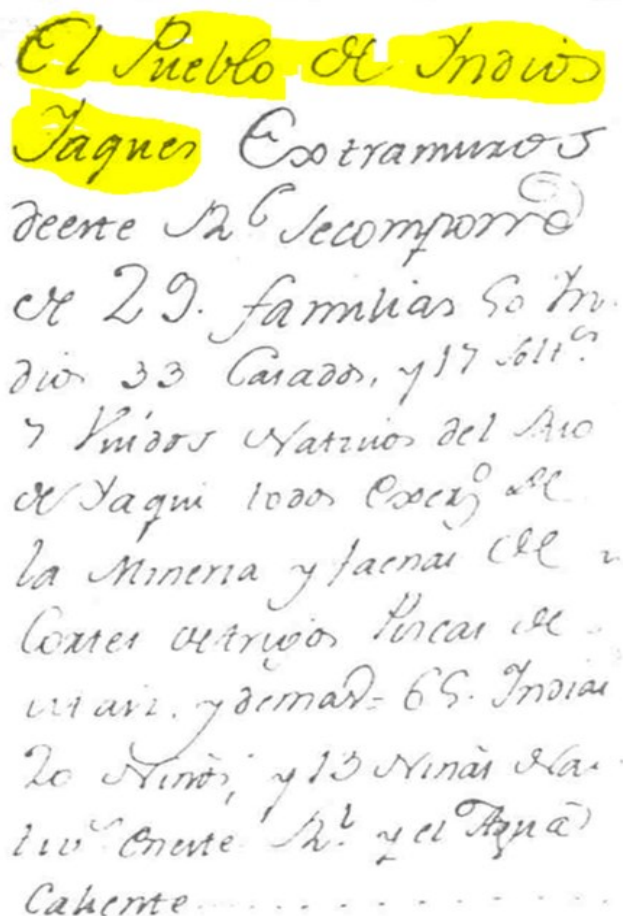 El Pueblo de Indios
Yaques Extramuros
deeste Rl. secompone
de 29. familias 50 In-
dios 33 Casados, y 17 solts.
7 Viudos Nativos del Rio
de Yaqui todos Exerzo. de
la Mineria y faenas de
Cortes detrigos Piscas de
maiz. ydemas= 65. Indias
20 Niños, y 13 Niñas Na-
tivs. eneste Rl. y el Agua
Caliente